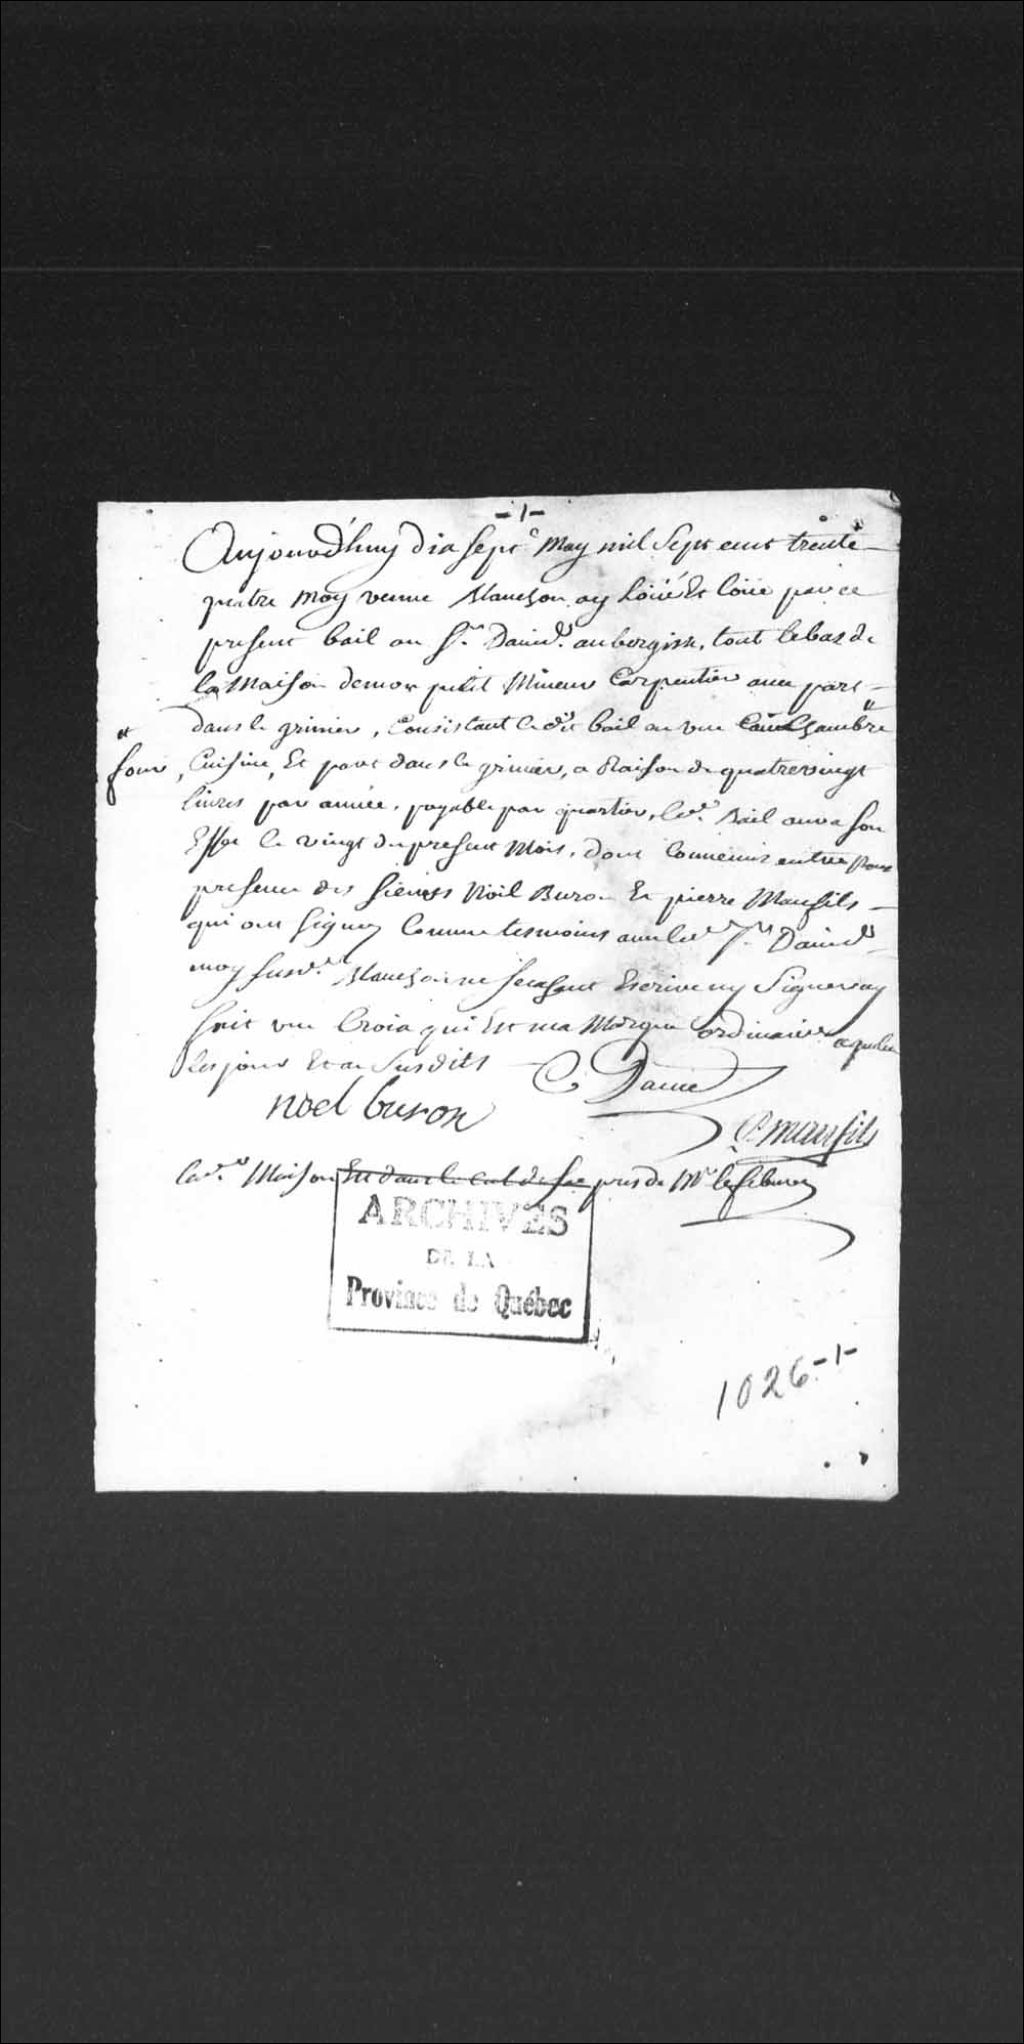 -1-
Aujourd'huy dix sept.e May mil Sept cent trente
quatre moy veuve Blanchon ay Loüé Et loüe par ce
present bail au Sr. Dainé. aubergiste. tout le bas de
la Maison de mon petit Mineur Carpentier avec part
dans le grenier, Consistant le dit bail en une Chambre
et four, Cuisine, Et part dans le grenier, a Raison de quatrevingt
livres par année. payable par quartier, led. Bail aura son
Effet le vingt du present Mois. dont Convenus entre nous
presence des sieurs Noël Buron Et pierre Maufils
qui ont signez Comme tesmoins avec led. Sr. Dainé
moy susd. Blanchon ne sachant Escrire ny Signer ay
fait une Croix qui Est ma Marque ordinaire a quebec
les jour Et an Susdits
C. Dainé
noel buron
P. maufils
lad. Maison Est dans le cul de sac pres de Mr. lefebure
ARCHIVES
DE LA
Province de Québec
1026-1-